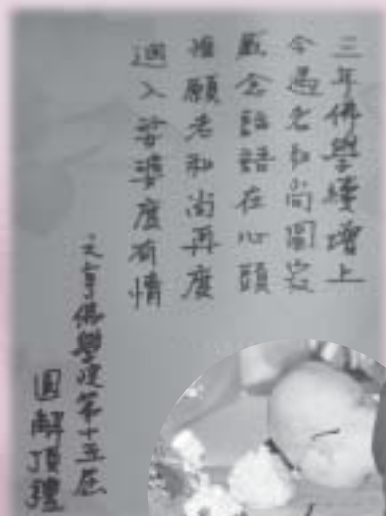 三年佛學續增上
今遇老和尚圓寂
感念話語在心頭
惟願老和尚再度
迴入娑婆度有情
元亨佛學院第十五屆
圓解頂禮